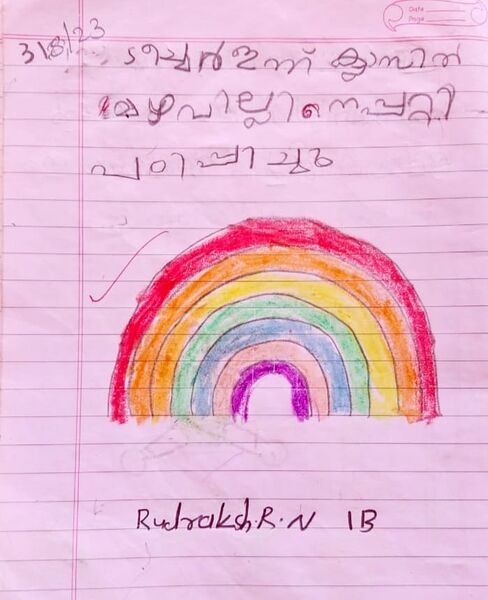 Date
Page
31/8/23
ടീച്ചർ ഇന്ന് ക്ലാസിൽ
മഴവില്ലിനെപ്പറ്റി
പഠിപ്പിച്ചു
Rudraksh.R.N 1B